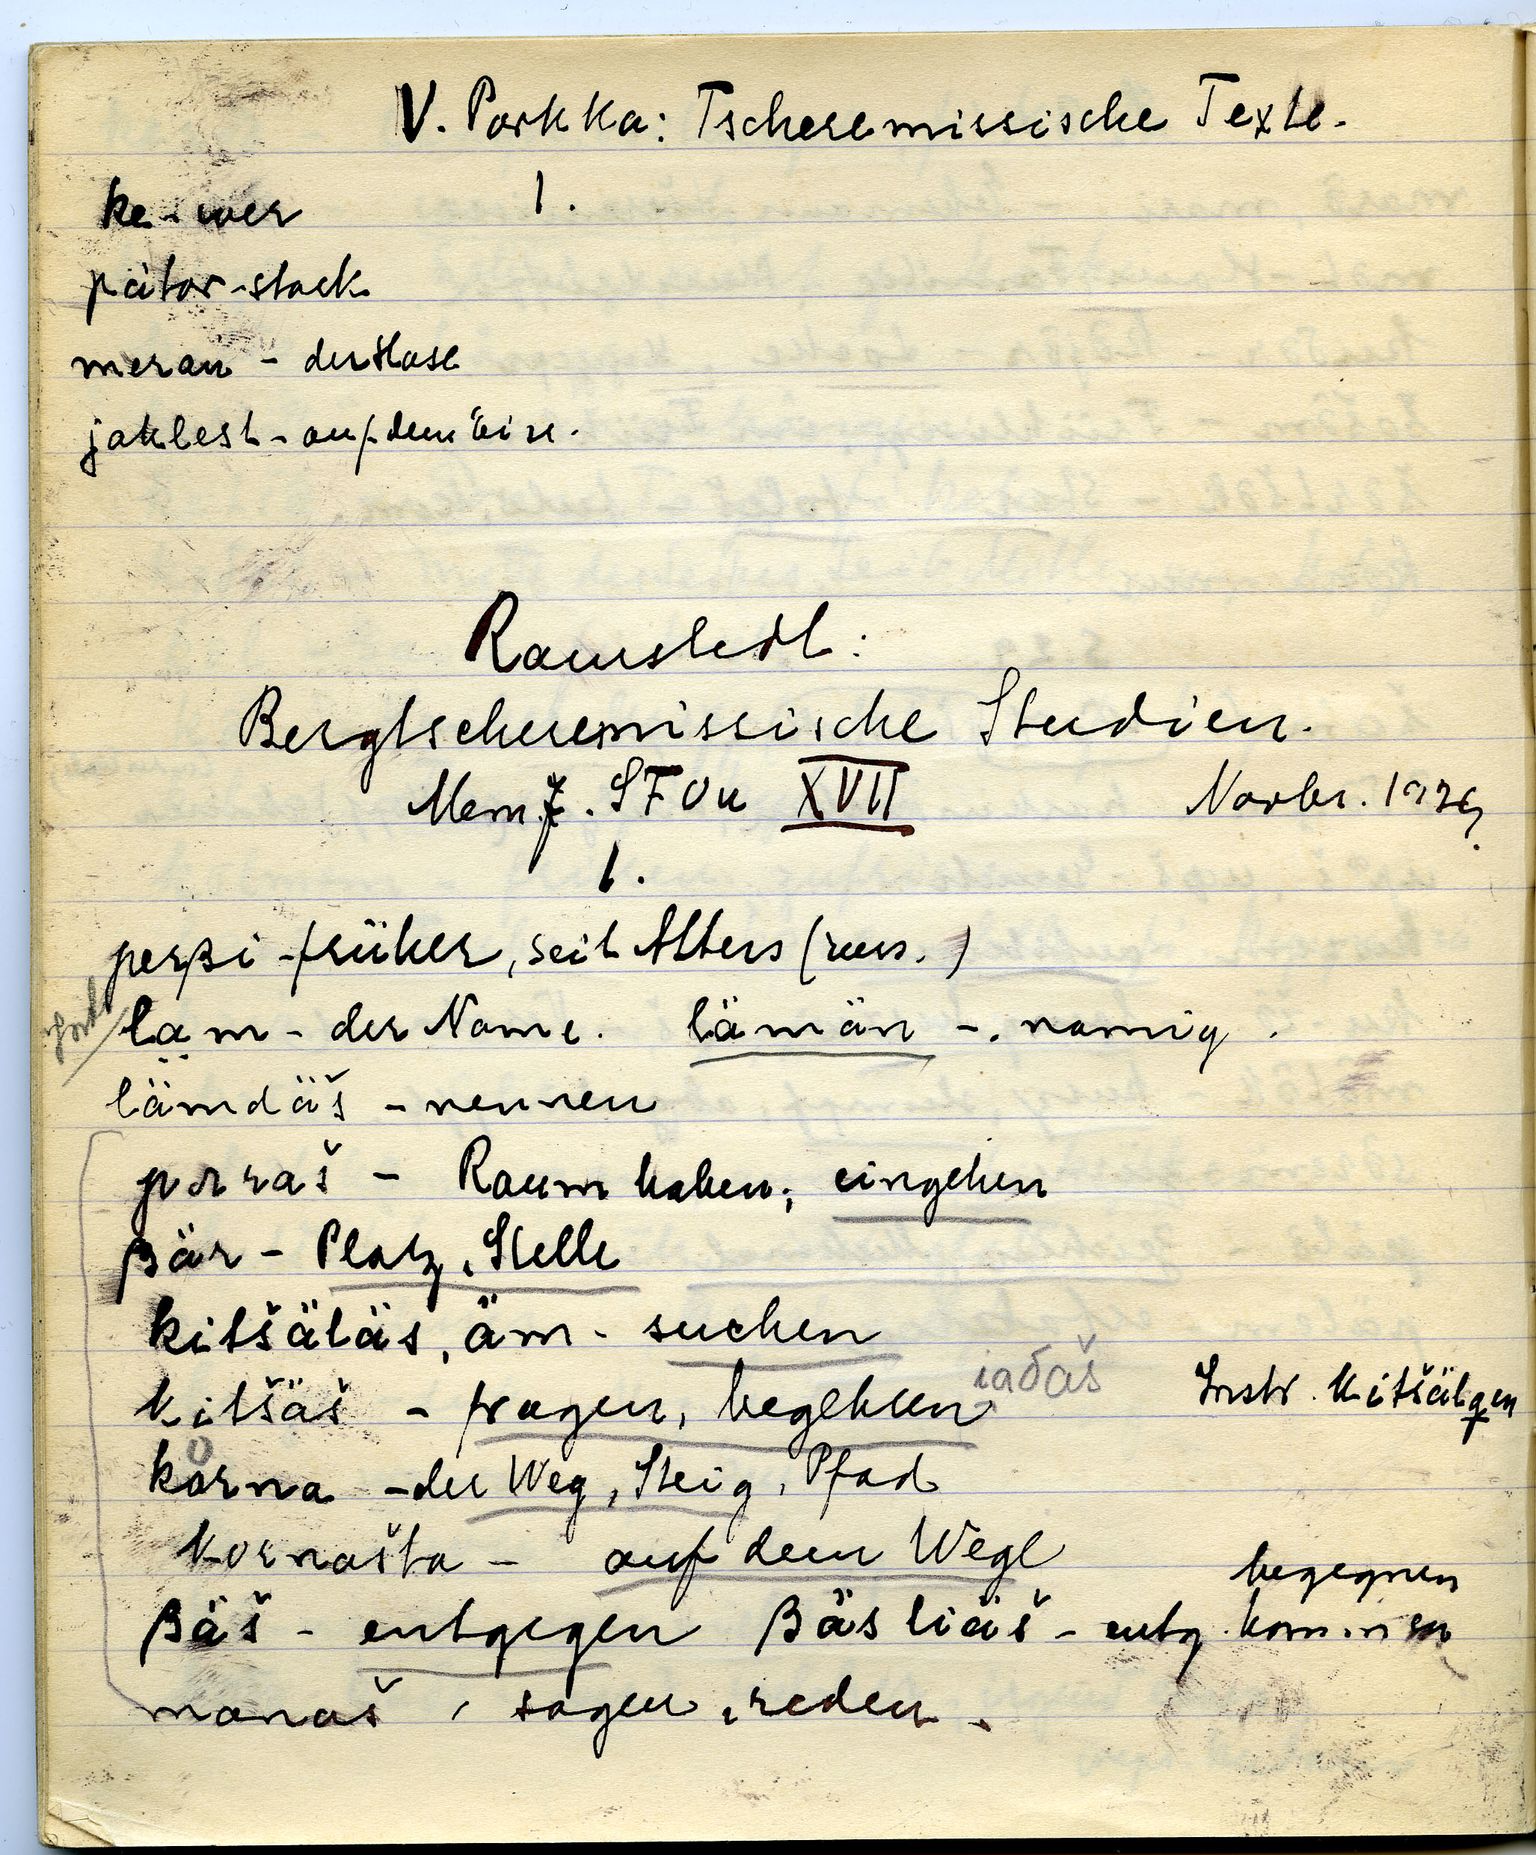 V. Porkka: Tscheremissische Texte.
1.
ke - wer
pátor - stark
meran - der Hase
jaklest - auf dem Eise.
Ramstedt:
Bergtscheremissische Studien.
Mem. SFOu XVII
Novbr. 192
1.
perβi - früher, seit Alters (russ.)
läm - der Name. lämän - namig.
lämdäš - nennen
pəraš - Raum haben; eingehen
βär - Platz, Stelle
kitšäläs, äm - suchen
kitšäš - fragen, begehren iaδaš
Instr. kitšälgen
korna - der Weg, Steig, Pfad
kornašta - auf dem Wege
begegnen
βäš - entgegen βäs liäš - entg. kommen
manaš, sagen, reden.